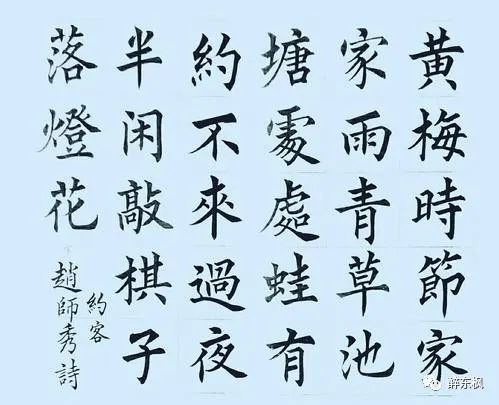 黃梅時節家
家雨青草池
塘處處蛙有
約不來過夜
半闲敲棋子
落燈花
約客
趙師秀詩
醉东枫